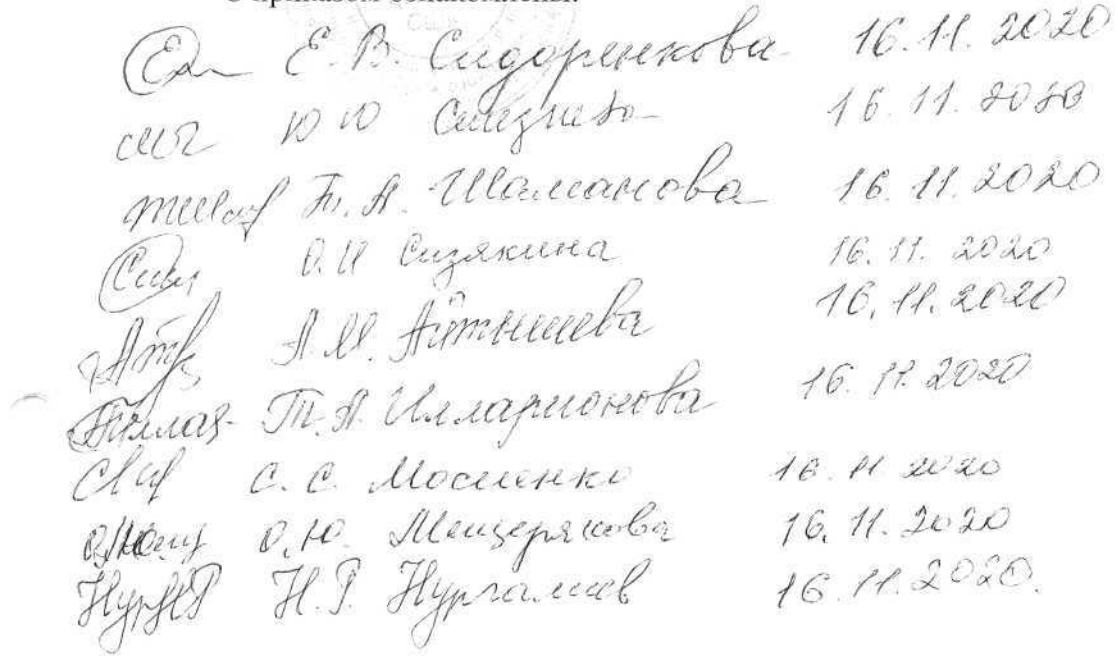 С приказом ознакомлены:
Е. В. Сидоренкова 16.11.2020
Ю Ю 16.11.2020
Т. А. Шаманова 16.11.2020
О. И Сизякина 16.11.2020
А. М. Айтмишева 16.11.2020
Т. А. Илларионова 16.11.2020
С. С. Мосиенко 16.11 2020
О. Ю. Мещерякова 16.11.2020
Н. Г. Нургалиев 16.11.2020.